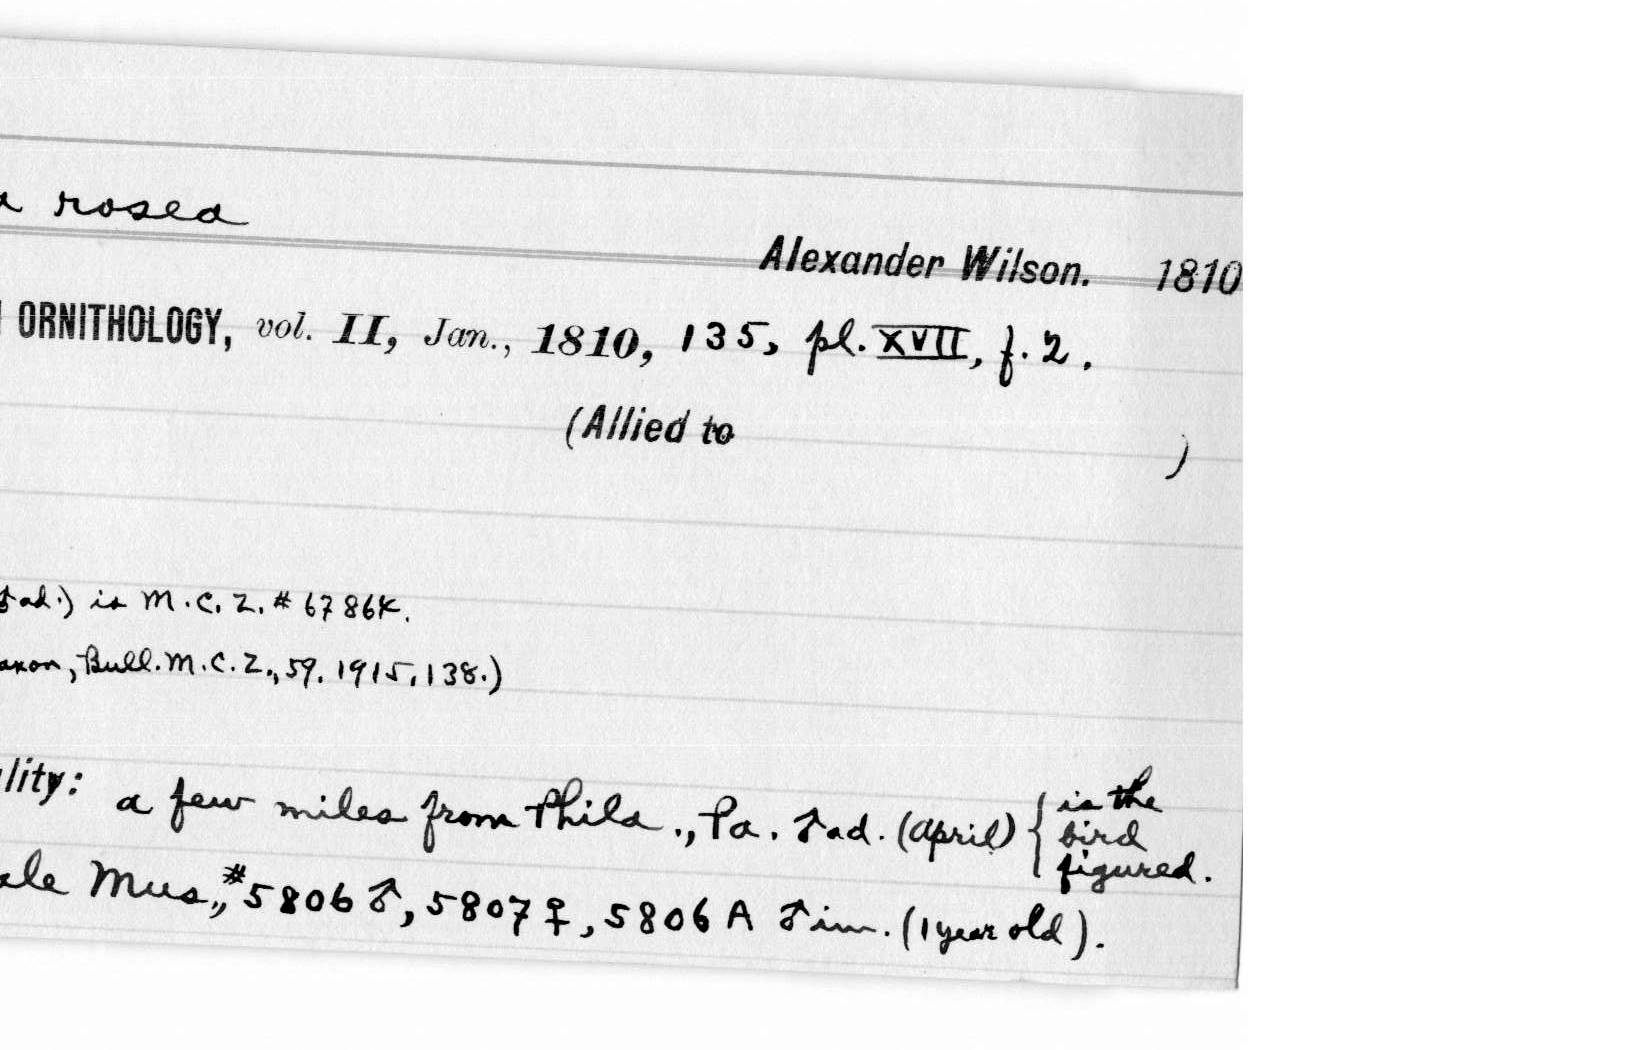 a rosea
Alexander Wilson. 1810
ORNITHOLOGY, vol. II, Jan., 1810, 135, pl. XVII, f. 2.
(Allied to )
♂ad.) is M.C.Z. # 67864.
axon, Bull. M.C.Z., 59, 1915, 138.)
lity: a few miles from Phila., Pa. ♂ad. (April) { is the
bird
figured.
ale Mus., #5806 ♂, 5807 ♀, 5806 A ♂ im. (1 year old).